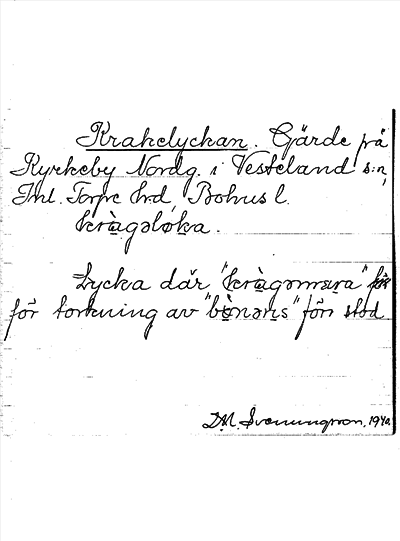 Krakelyckan. Gärde på
Kyrkeby Nordg. i Vesteland s:n,
Inl. Torpe hrd, Bohus l.
kràgəlo̱ka.
Lycka där "kràgəmɑra" för
för torkning av "bònəns" förr stod.
D.M. Svenungsson, 1940